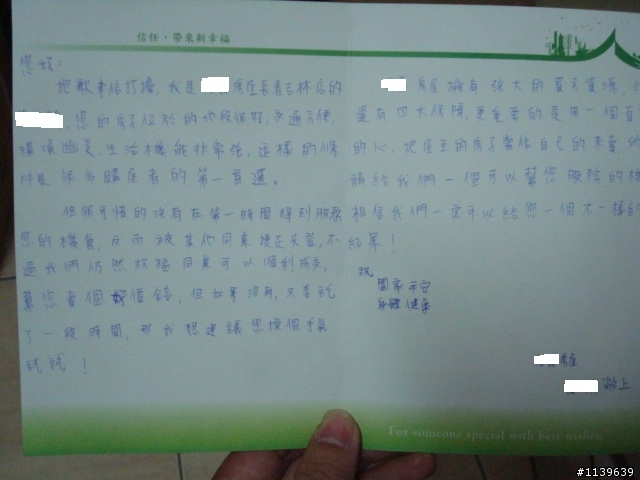 信任、帶來新幸福
您好:
抱歉來信打擾,我是 房屋長春吉林店的
您的房子位於的地段很好,交通方便,
環境幽美,生活機能非常強,這樣的條
件是很多購屋者的第一首選。
但很可惜的沒有在第一時間得到服務
您的機會,反而被其他同業捷足先登,不
過我們仍然祝福同業可以順利成交,
幫您賣個好價錢,但如果沒有,又委託
了一段時間,那我想建議您換個手氣
試試!
房屋擁有強大的買方資源,
還有四大保障,更重要的是用一個
的心,把屋主的房子當作自己的來賣
請給我們一個可以幫您服務的機
相信我們一定可以給您一個不一樣的
結果!
祝
闔家平安
身體健康
房屋
敬上
For someone special with best wishes.
#1139639